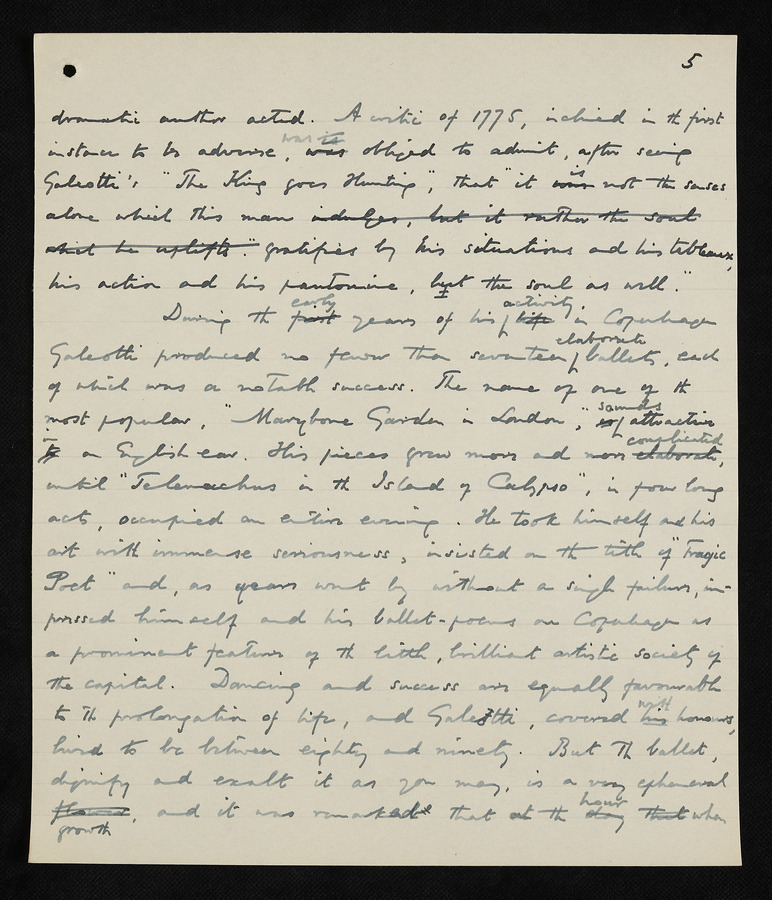 5
dramatic author acted. A critic of 1775, inclined in the first
was it
instance to be adverse, was obliged to admit, after seeing
Galeotti's "The King goes Hunting", that "it was is not the senses
alone which this man indulges, but it rather the soul
which he uplifts." gratifies by his situations and his tableaux,
his action and his pantomime, but the soul as well."
early activity,
During the first years of his life in Copenhagen
elaborate
Galeotti produced no fewer than seventeen ballets, each
of which was a notable success. The name of one of the
sounds
most popular, "Marybone Garden in London", attractive
in complicated
to an English ear. His pieces grew more and more elaborate,
until "Telemachus in the Island of Calypso", in four long
acts, occupied an entire evening. He took himself and his
art with immense seriousness, insisted on the title of "Tragic
Poet" and, as years went by without a single failure, im-
pressed himself and his ballet-poems on Copenhagen as
a prominent feature of the little, brilliant artistic society of
the capital. Dancing and success are equally favourable
with
to the prolongation of life, and Galeotti, covered his honours,
lived to be between eighty and ninety. But the ballet,
dignify and exalt it as you may, is a very ephemeral
hour
flower, and it was remarked that at the day that when
growth